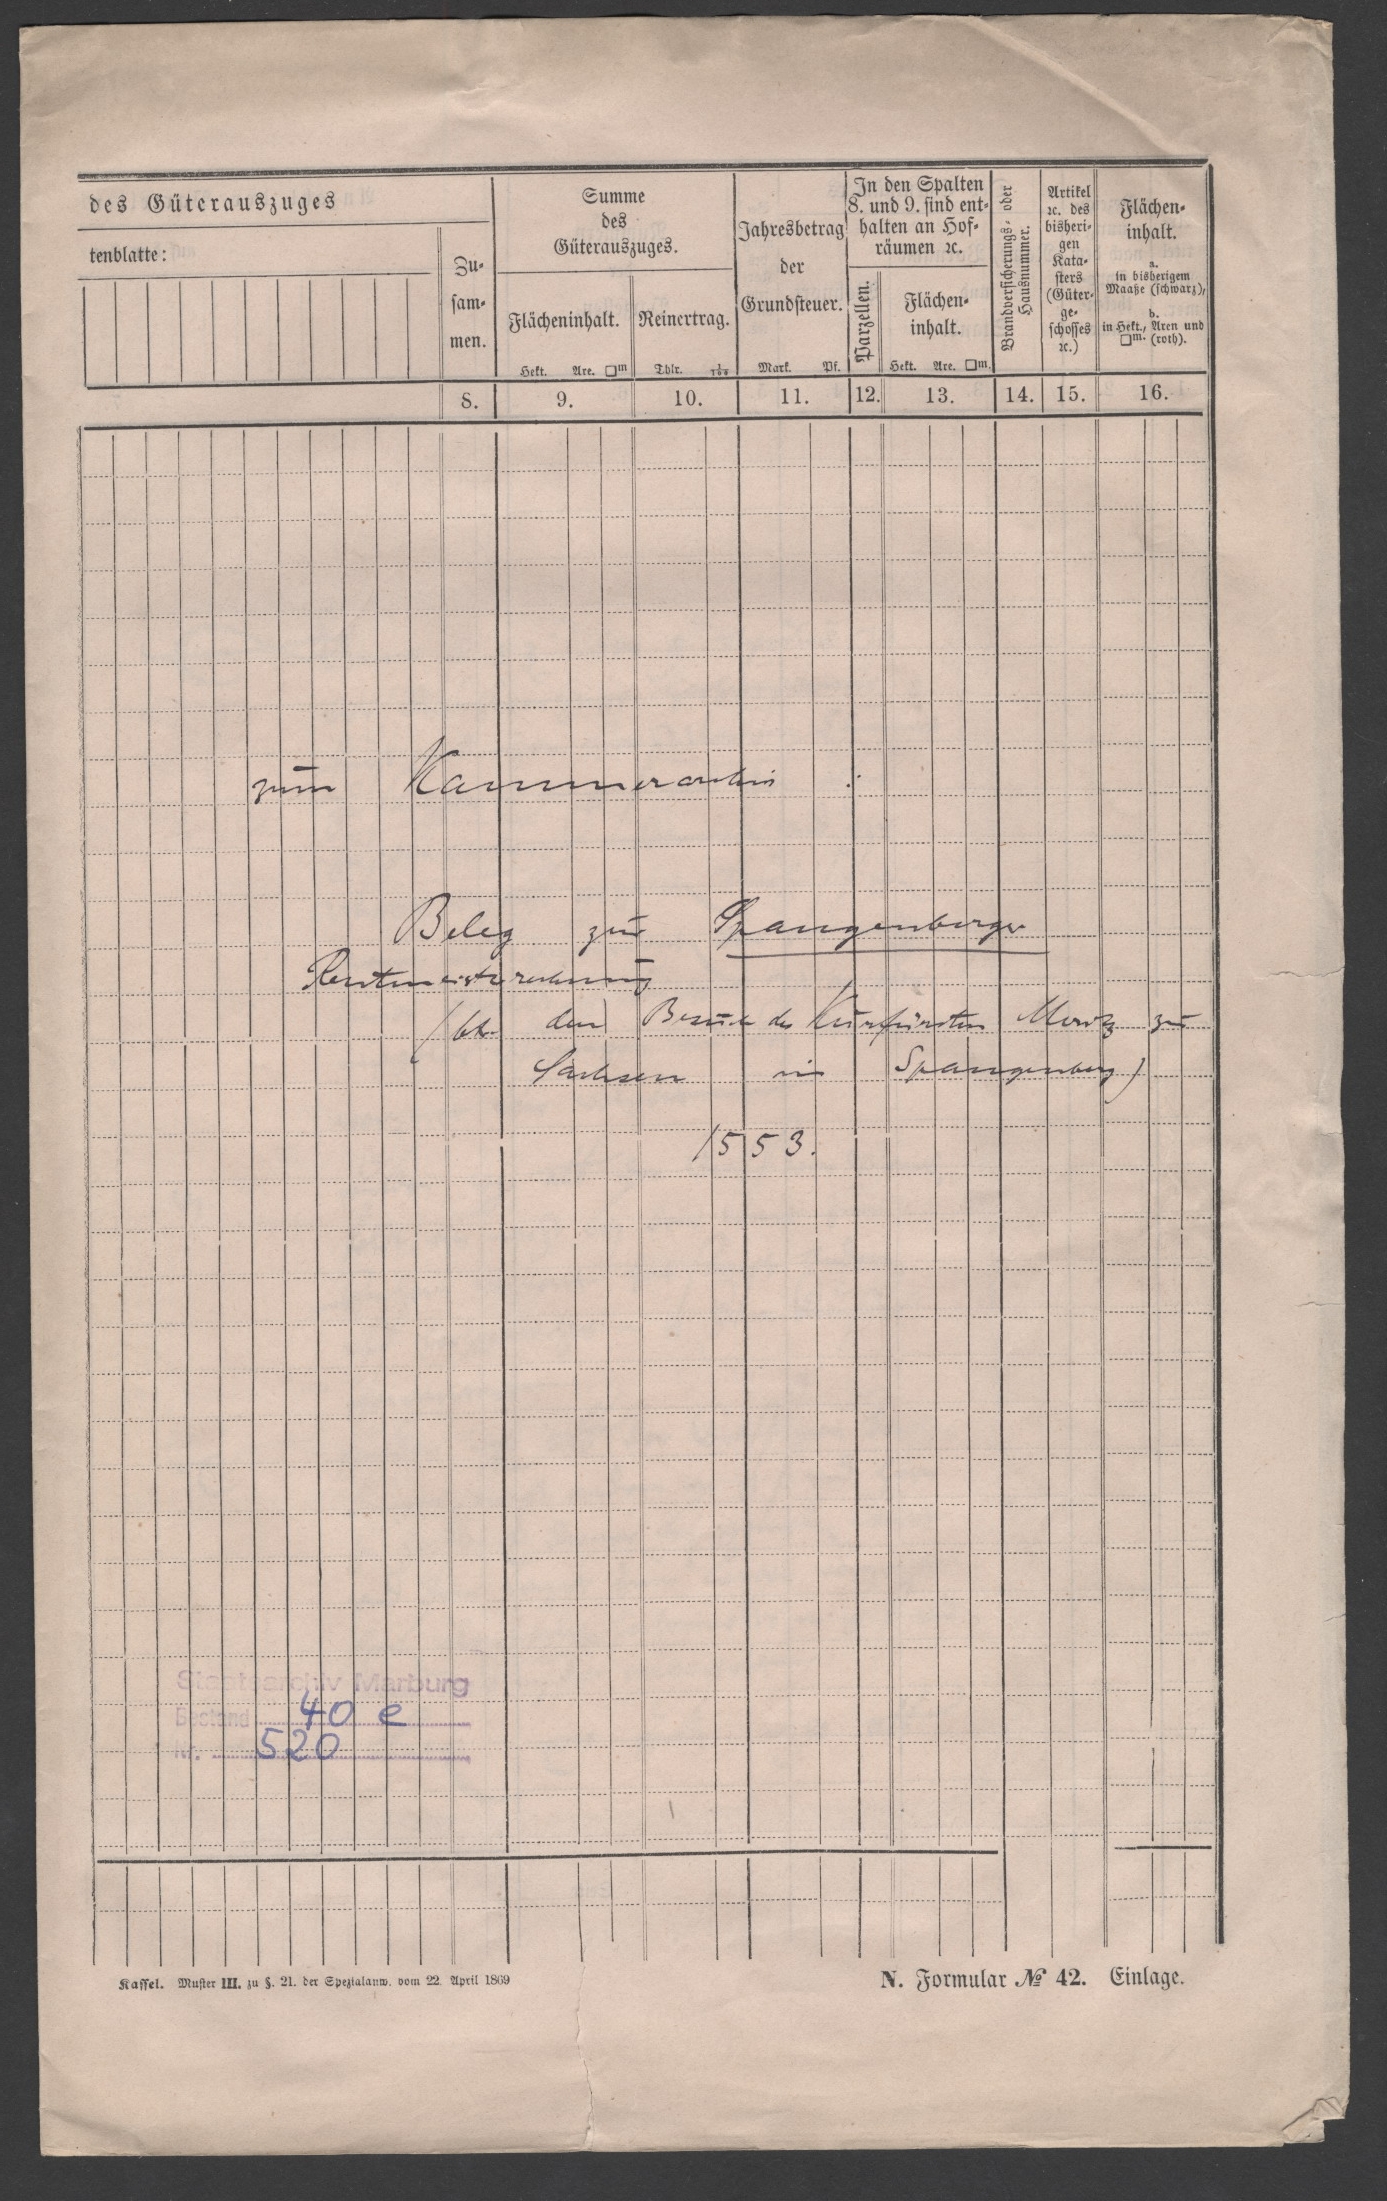 des Güterauszuges
tenblatte:
Zu-
sam-
men.
Summe
des
Güterauszuges.
Flächeninhalt.
Hekt. Are. □m
Reinertrag.
Thlr. 1/100
Jahresbetrag
der
Grundsteuer.
Mark. Pf.
In den Spalten
8. und 9. sind ent-
halten an Hof-
räumen ꝛc.
Parzellen.
Flächen-
inhalt.
Hekt. Are. □m.
Brandversicherungs- oder
Hausnummer.
Artikel
ꝛc. des
bisheri-
gen
Kata-
sters
(Güter-
ge-
schosses
ꝛc.)
Flächen-
inhalt.
a.
in bisherigem
Maaße (schwarz),
b.
in Hekt., Aren und
□m. (roth).
8. 9. 10. 11. 12. 13. 14. 15. 16.
zum Kammerarchiv :
Beleg zur Spangenberger
Rentmeisterechnung
(btr. den Besuch des Kurfürsten Moritz zu
Sachsen in Spangenberg)
1553.
Staatsarchiv Marburg
Bestand 40 e
Nr. 520
Kassel. Muster III. zu §. 21. der Spezialanw. vom 22. April 1869
N. Formular № 42. Einlage.